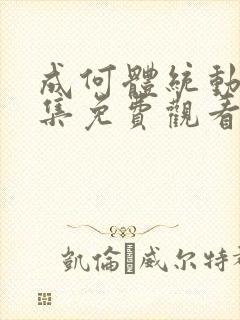 成何體統動
集免費觀看
凱倫·威尔特